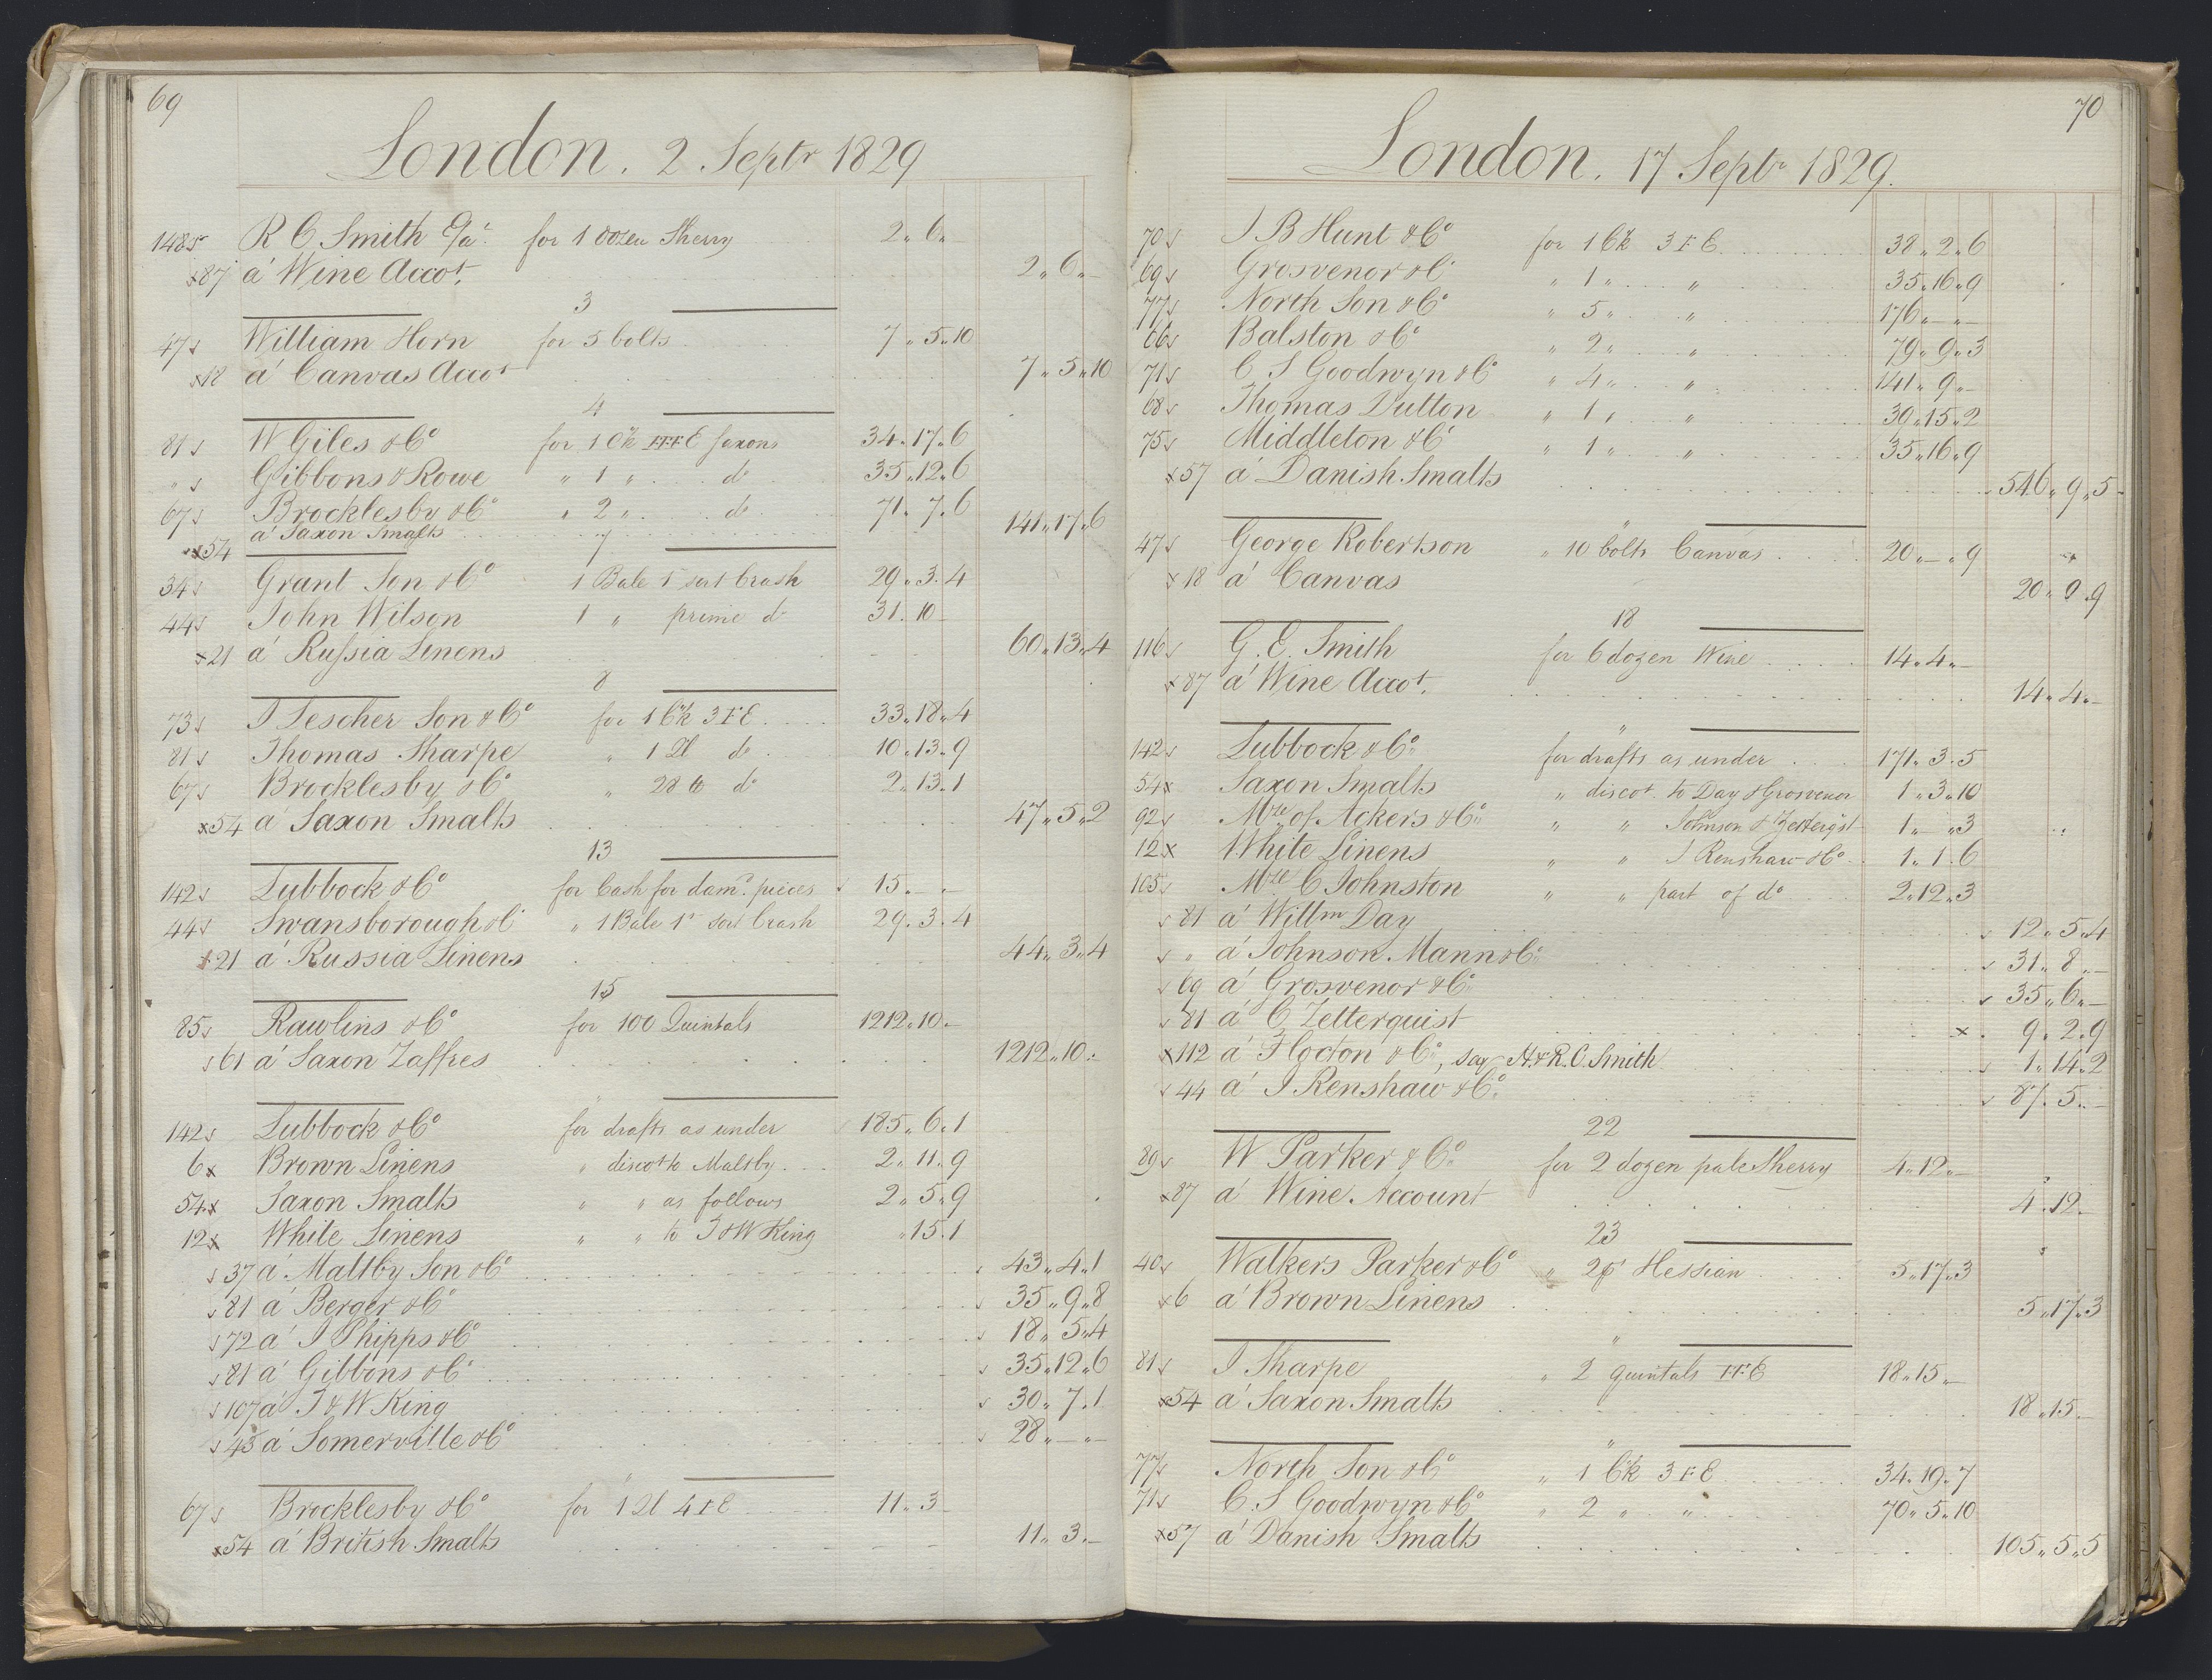 69
London. 2 Septr 1829
148 R C Smith C/a for 1 dozen Sherry 2 „ 6 „ –
87 á Wine Accot. 2 „ 6 „ –
3
47 William Horn for 5 bolts 7 „ 5 „ 10
18 á Canvas Accot 7 „ 5 „ 10
4
81 W Giles & Co for 1 Ck FFFE Saxons 34 „ 17 „ 6
„ Gibbons & Rowe „ 1 „ do 35 „ 12 „ 6
67 Brocklesby & Co „ 2 „ do 71 „ 7 „ 6
54 á Saxon Smalts 141 „ 17 „ 6
7
34 Grant Son & Co 1 Bale 1 sort Crash 29 „ 3 „ 4
44 John Wilson 1 „ prime do 31 „ 10 –
21 á Russia Linens 60 „ 13 „ 4
8
73 J Tescher Son & Co for 1 Ck 3 F E 33 „ 18 „ 4
81 Thomas Sharpe „ 1 Ql do 10 „ 13 „ 9
67 Brocklesby & Co „ 28 lb do 2 „ 13 „ 1
54 á Saxon Smalts 47 „ 5 „ 2
13
142 Lubbock & Co for Cash for damd. pieces 15 „ – „ –
44 Swansborough & Co „ 1 Bale 1st sort Crash 29 „ 3 „ 4
21 á Russia Linens 44 „ 3 „ 4
15
85 Rawlins & Co for 100 Quintals 1212 „ 10 „ –
61 á Saxon Zaffres 1212 „ 10 „ –
„
142 Lubbock & Co for drafts as under 185 „ 6 „ 1
6 Brown Linens „ discot to Maltby 2 „ 11 „ 9
54 Saxon Smalts „ „ as follows 2 „ 5 „ 9
12 White Linens „ „ to J & W King „ 15 „ 1
37 á Maltby Son & Co 43 „ 4 „ 1
81 á Berger & Co 35 „ 9 „ 8
72 á J Phipps & Co 18 „ 5 „ 4
81 á Gibbons & Co 35 „ 12 „ 6
107 á J & W King 30 „ 7 „ 1
43 á Somerville & Co 28 „ – „ –
„
67 Brocklesby & Co for 1 Ql 4 F E 11 „ 3 –
54 á British Smalts 11 „ 3 „ –
70
London. 17 Septr 1829.
70 J B Hunt & Co for 1 Ck 3 F E 38 „ 2 „ 6
69 Grosvenor & Co „ 1 „ „ 35 „ 16 „ 9
77 North Son & Co „ 5 „ „ 176 „ – „ –
66 Balston & Co „ 2 „ „ 79 „ 9 „ 3
71 C S Goodwyn & Co „ 4 „ „ 141 „ 9 „ –
68 Thomas Dutton „ 1 „ „ 39 „ 15 „ 2
75 Middleton & Co „ 1 „ „ 35 „ 16 „ 9
57 á Danish Smalts 546 „ 9 „ 5
„
47 George Robertson „ 10 bolts Canvas 20 „ – „ 9
18 á Canvas 20 „ 0 „ 9
18
116 G. E. Smith for 6 dozen Wine 14 „ 4 „ –
87 á Wine Accot. 14 „ 4 „ –
„
142 Lubbock & Co for drafts as under 171 „ 3 „ 5
54 Saxon Smalts „ discot. to Day & Grosvenor 1 „ 3 „ 10
92 Mze of Ackers & Co „ „ Johnson & Zetterqst 1 „ – „ 3
12 White Linens „ „ J Renshaw & Co 1 „ 1 „ 6
105 Mze C Johnston „ „ part of do 2 „ 12 „ 3
81 á Willm Day 12 „ 5 „ 4
„ á Johnson Mann & Co 31 „ 8 „ –
69 á Grosvenor & Co 35 „ 6 „ –
81 á C Zetterquist 9 „ 2 „ 9
112 á Flocton & Co, say H. & R. C. Smith 1 „ 14 „ 2
44 á J Renshaw & Co 87 „ 5 „ –
22
89 W Parker & Co for 2 dozen pale Sherry 4 „ 12 „ –
87 á Wine Account 4 „ 12 „ –
23
40 Walkers Parker & Co „ 2 ps Hessian 5 „ 17 „ 3
6 á Brown Linens 5 „ 17 „ 3
„
81 J Sharpe „ 2 quintals FFE 18 „ 15 „ –
54 á Saxon Smalts 18 „ 15 –
„
77 North Son & Co „ 1 Ck 3 F E 34 „ 19 „ 7
71 C. S Goodwyn & Co „ 2 „ „ 70 „ 5 „ 10
57 á Danish Smalts 105 „ 5 „ 5